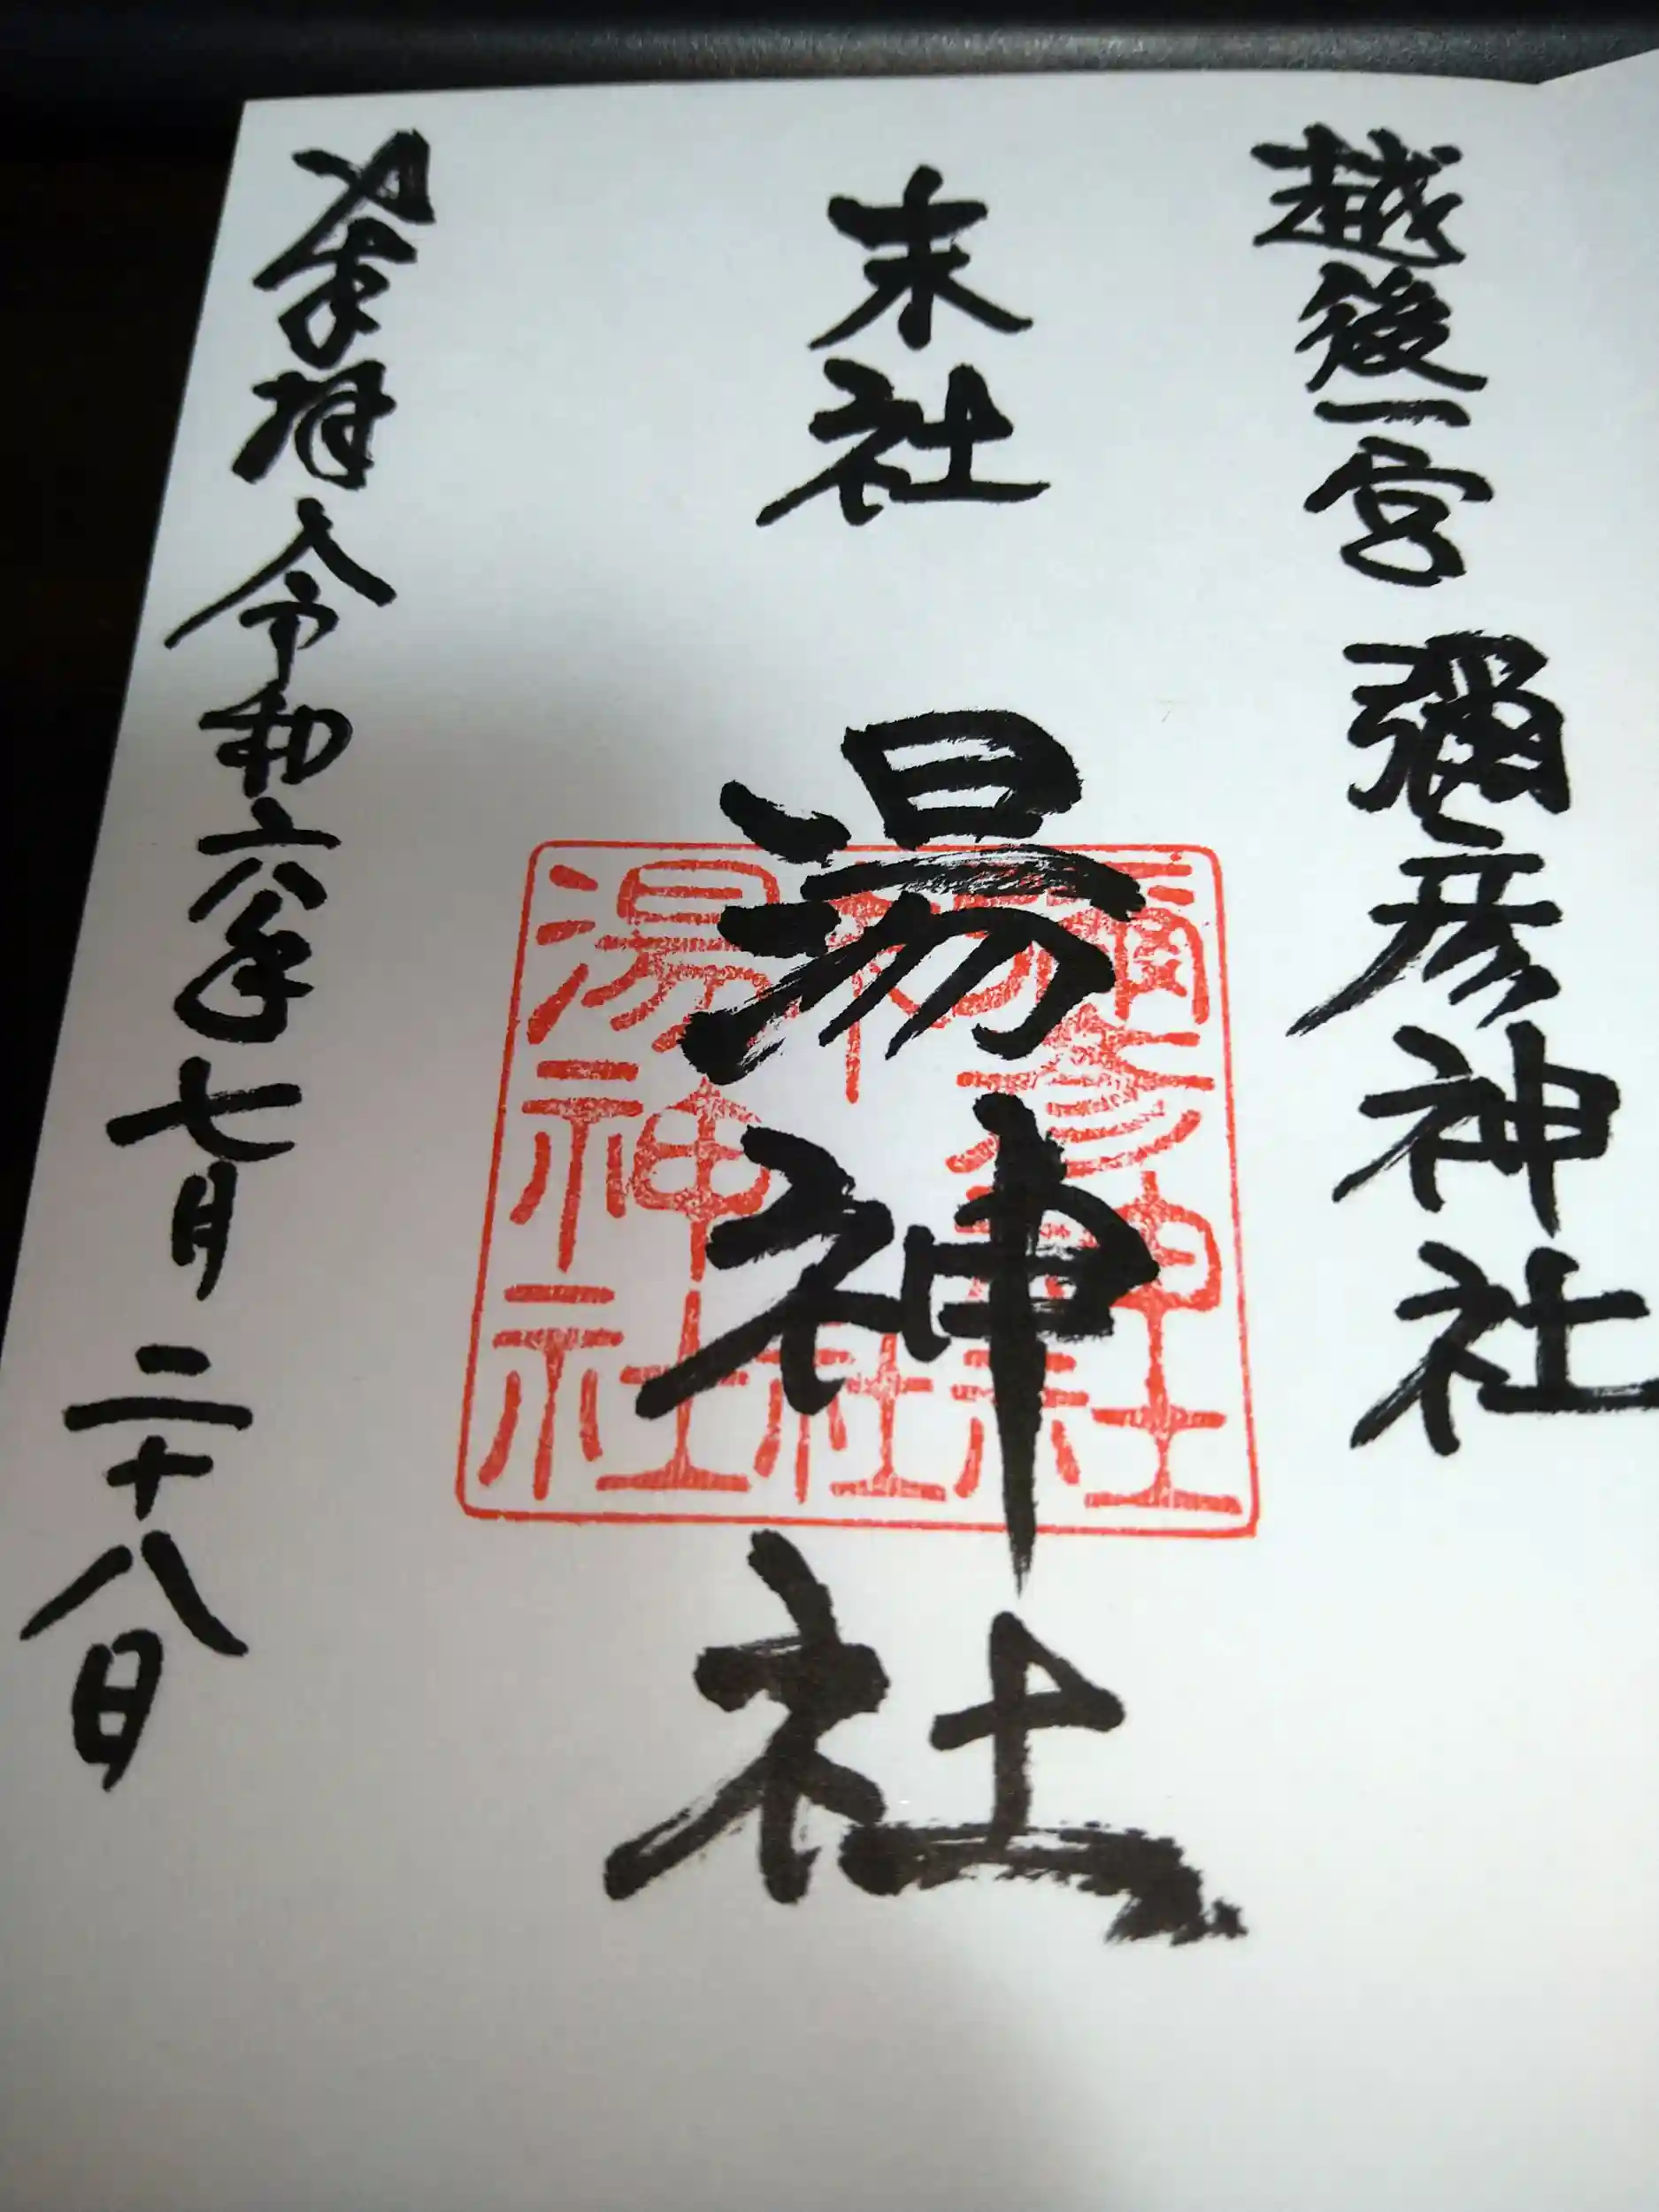 越後一宮 彌彦神社
末社 湯神社
夏季拝 令和六年七月二十八日
彌彦神社
末社
湯神社